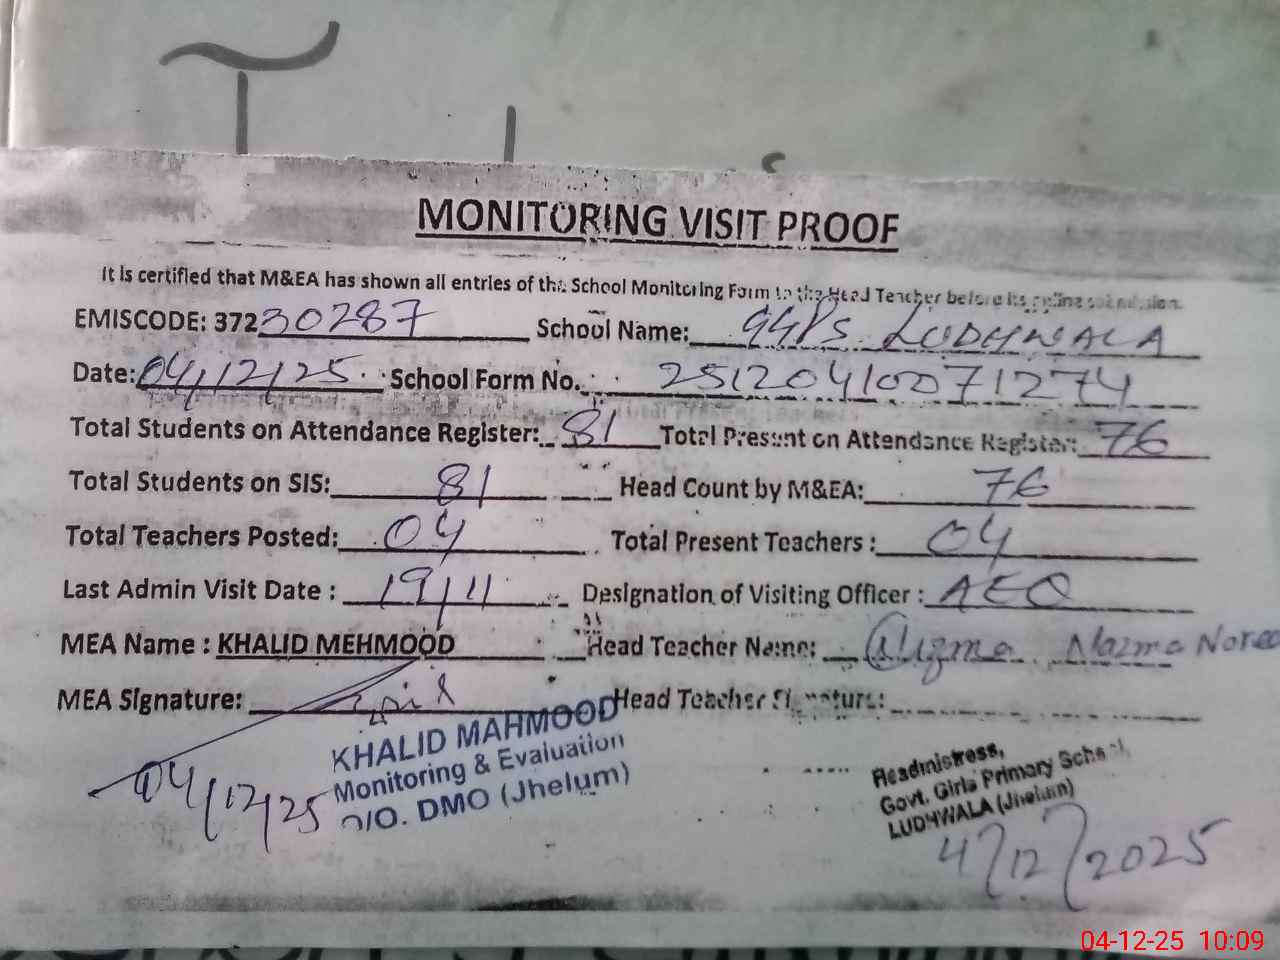 MONITORING VISIT PROOF
It is certified that M&EA has shown all entries of the School Monitoring Form to the Head Teacher before its
EMISCODE: 37230287 School Name: GGPS. LUDHWALA
Date: 04/12/25 School Form No. 25120410071274
Total Students on Attendance Register: 81 Total Present on Attendance Register: 76
Total Students on SIS: 81 Head Count by M&EA: 76
Total Teachers Posted: 04 Total Present Teachers : 04
Last Admin Visit Date : 19/11 Designation of Visiting Officer : AEO
MEA Name : KHALID MEHMOOD Head Teacher Name: Nazma Nore
MEA Signature: Head Teacher Signature:
KHALID MAHMOOD
Monitoring & Evaluation
O/O. DMO (Jhelum)
04/12/25
Headmistress,
Govt. Girls Primary School,
LUDHWALA (Jhelum)
4/12/2025
04-12-25 10:09